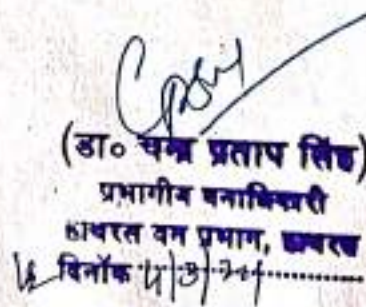 (डा० चन्द्र प्रताप सिंह)
प्रभागीय वनाधिकारी
हाथरस वन प्रभाग, हाथरस
दिनॉक 4/3/24